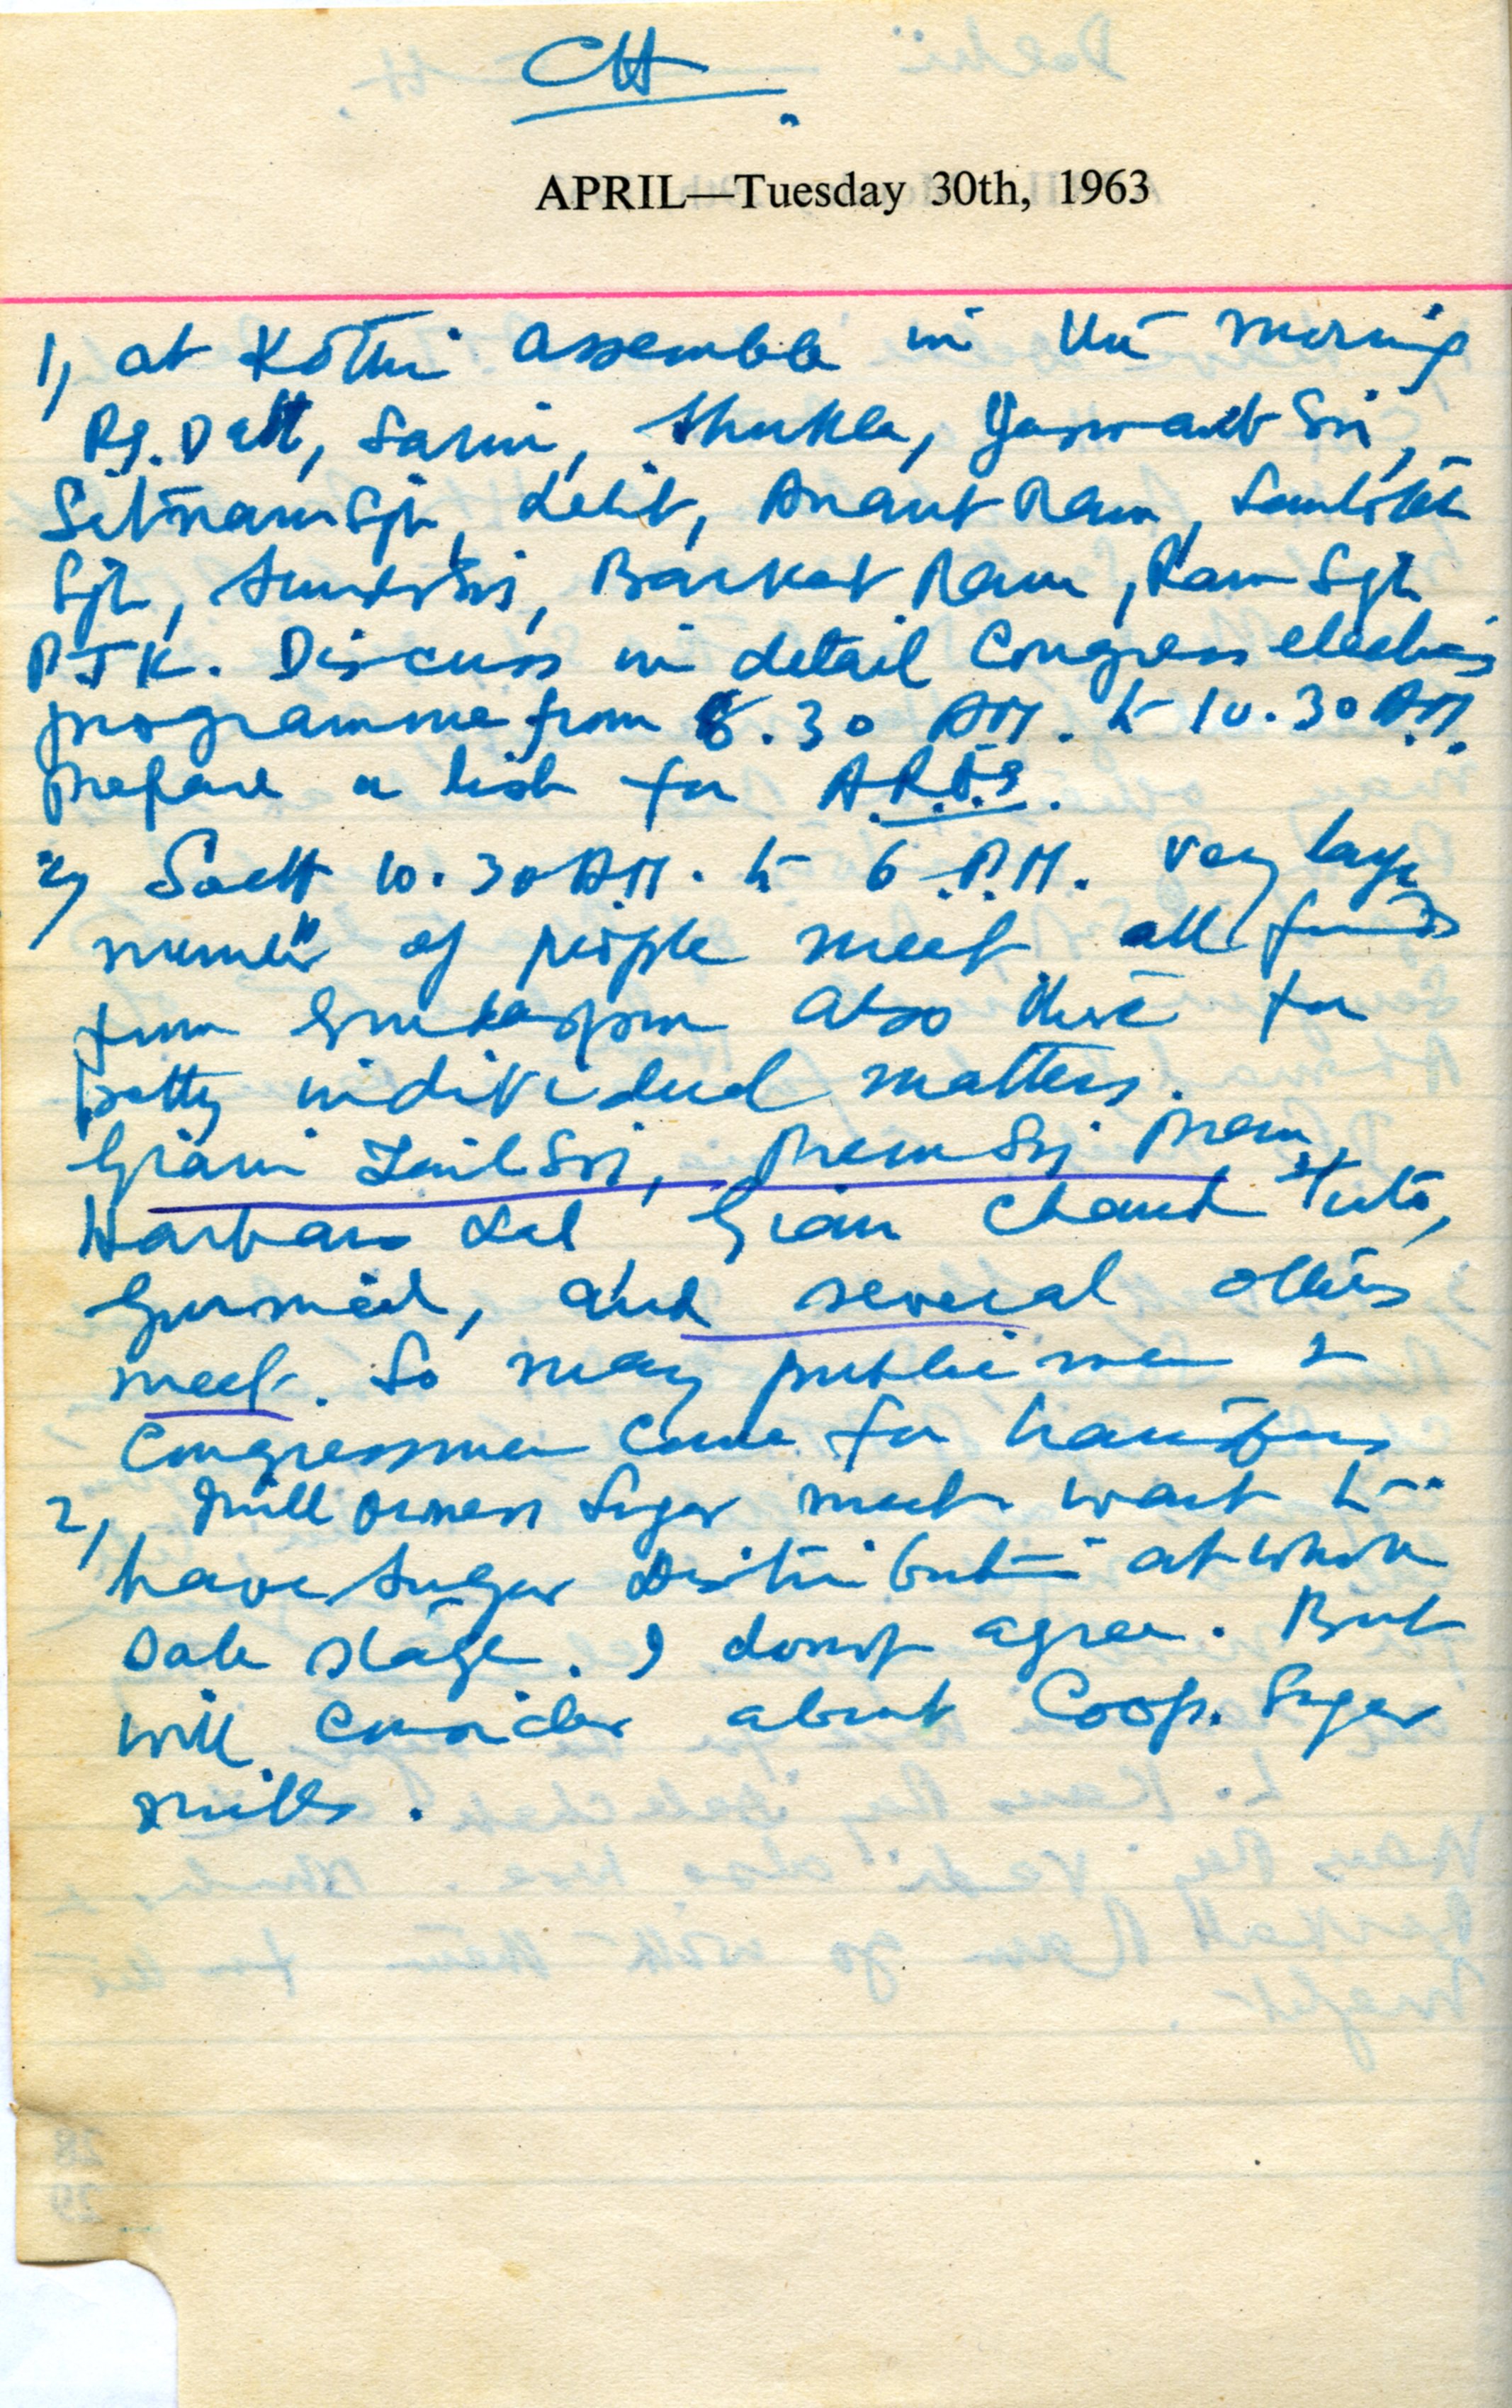 CH.
APRIL—Tuesday 30th, 1963
1, at Kothi assemble in the morning
Pg. Datt, Sarin, Shukla, Yaswant Sri,
Satnam Sgh, Lalit, Anant Ram, Santokh
Sgh, Barkat Ram, Ram Sgh
P.J.K. Discuss in detail Congress elections
programme from 8.30 AM. to 10.30 AM.
prepare a list for
2, Sectt 10.30 AM. to 6 P.M. very large
number of people meet all friends
from Gurdaspur also there for
petty individual matters.
Giani Zail Sri, Prem Sri Prem,
Harbans Lal, Gian Chand
Gurmail, and several others
meet. So many public men &
Congressmen come for transfers
2, Mill owners Sugar meet want to
have sugar distribution at whole
sale stage. I donot agree. But
will consider about Coop. Sugar
mills.